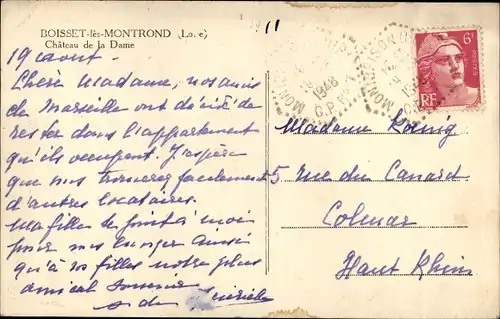 BOISSET-lès-MONTROND (Loire)
Château de la Dame
19 aout.
Chère Madame, nos amis
de Marseille ont décidé de
rester dans l'appartement
qu'ils occupent. J'espère
que vous trouverez facilement
d'autres locataires.
Ma fille se joint à moi
pour vous envoyer ainsi
qu'à vos filles notre plus
amical souvenir
Madame Koenig
5 rue du Canard
Colmar
Haut Rhin
1948
6F
POSTES
RF